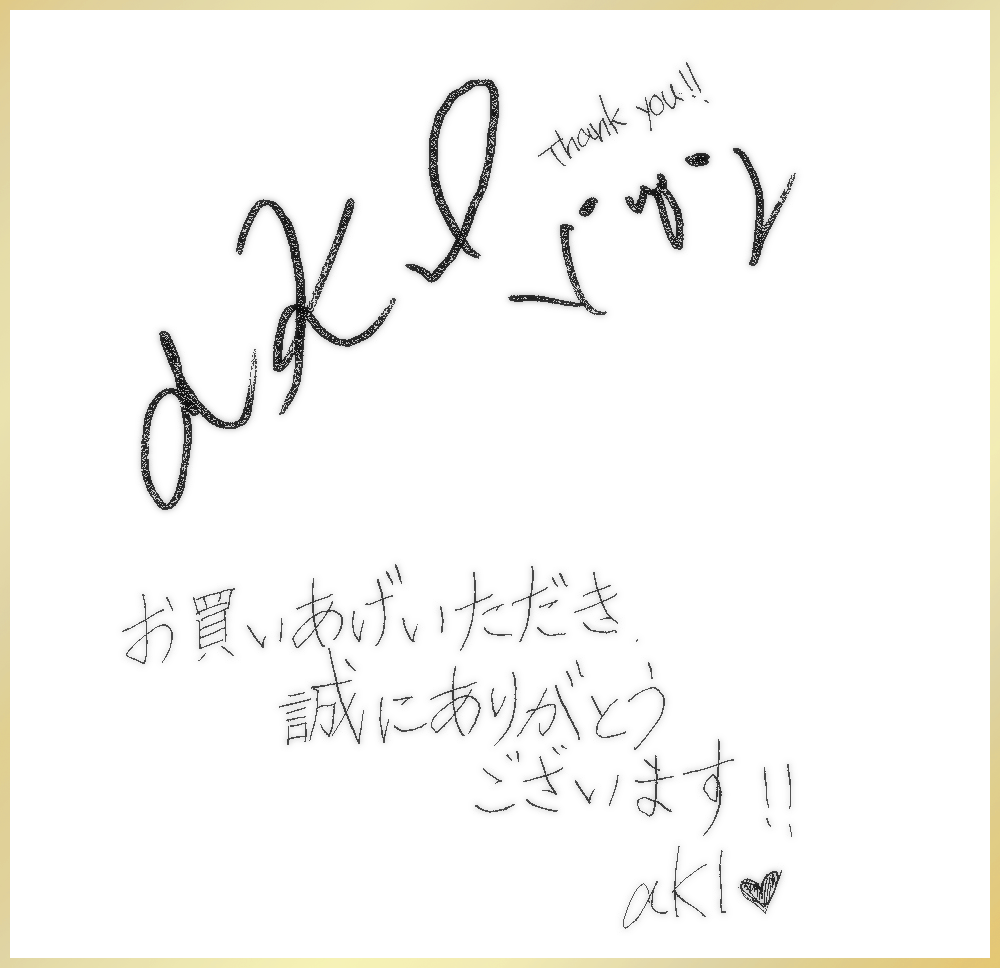 akl
Thank you!!
お買いあげいただき、
誠にありがとう
ございます!!
akl♥